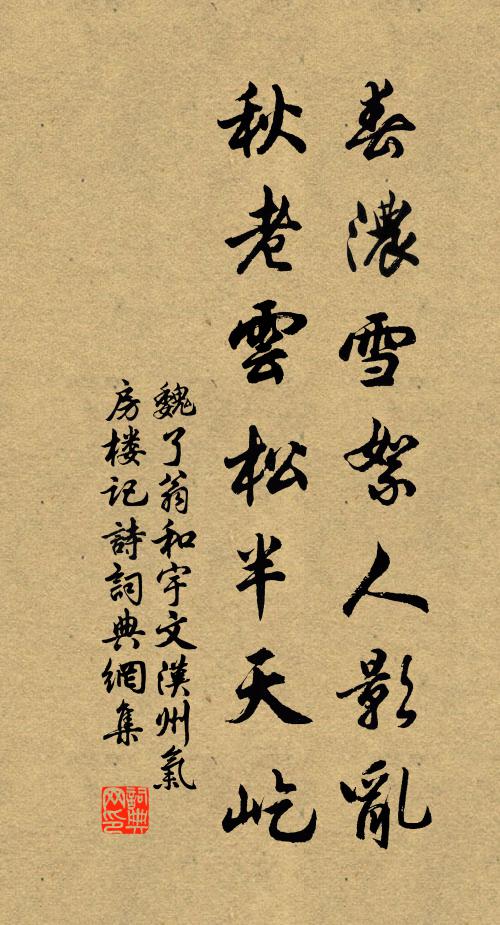 春濃雪絮人影亂
秋老雲松半天屹
魏了翁和宇文漢州氣
房楼记詩詞典網集
詞典网印